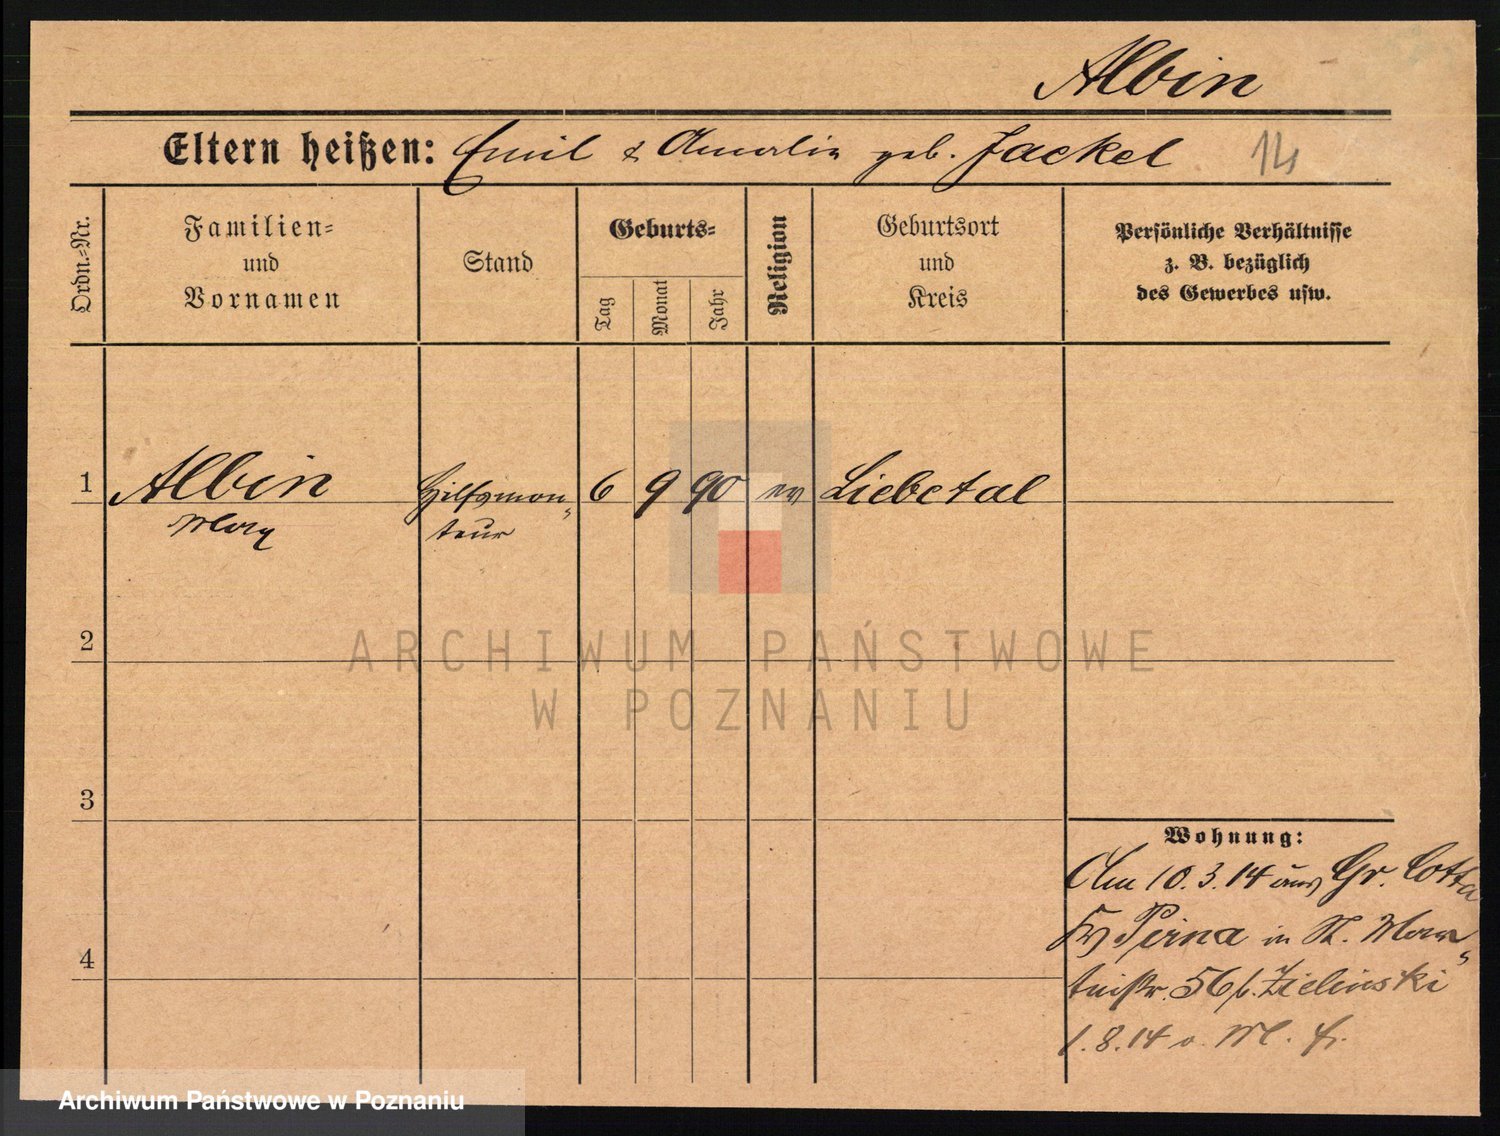 Albin
Eltern heißen: Emil & Amalie geb. Jackel 14
Ordn.-Nr.
Familien-
und
Vornamen
Stand
Geburts-
Tag
Monat
Jahr
Religion
Geburtsort
und
Kreis
Persönliche Verhältnisse
z. B. bezüglich
des Gewerbes usw.
1 Albin Hilfsmon- 6 9 90 ev Liebetal
Max teur
2
ARCHIWUM PAŃSTWOWE
W POZNANIU
3
Wohnung:
Am 10.3.14 aus Gr. Cotta
Pirna in St. Mar-
tinstr. 56 b. Zielinski
4
1.8.14 v.
Archiwum Państwowe w Poznaniu